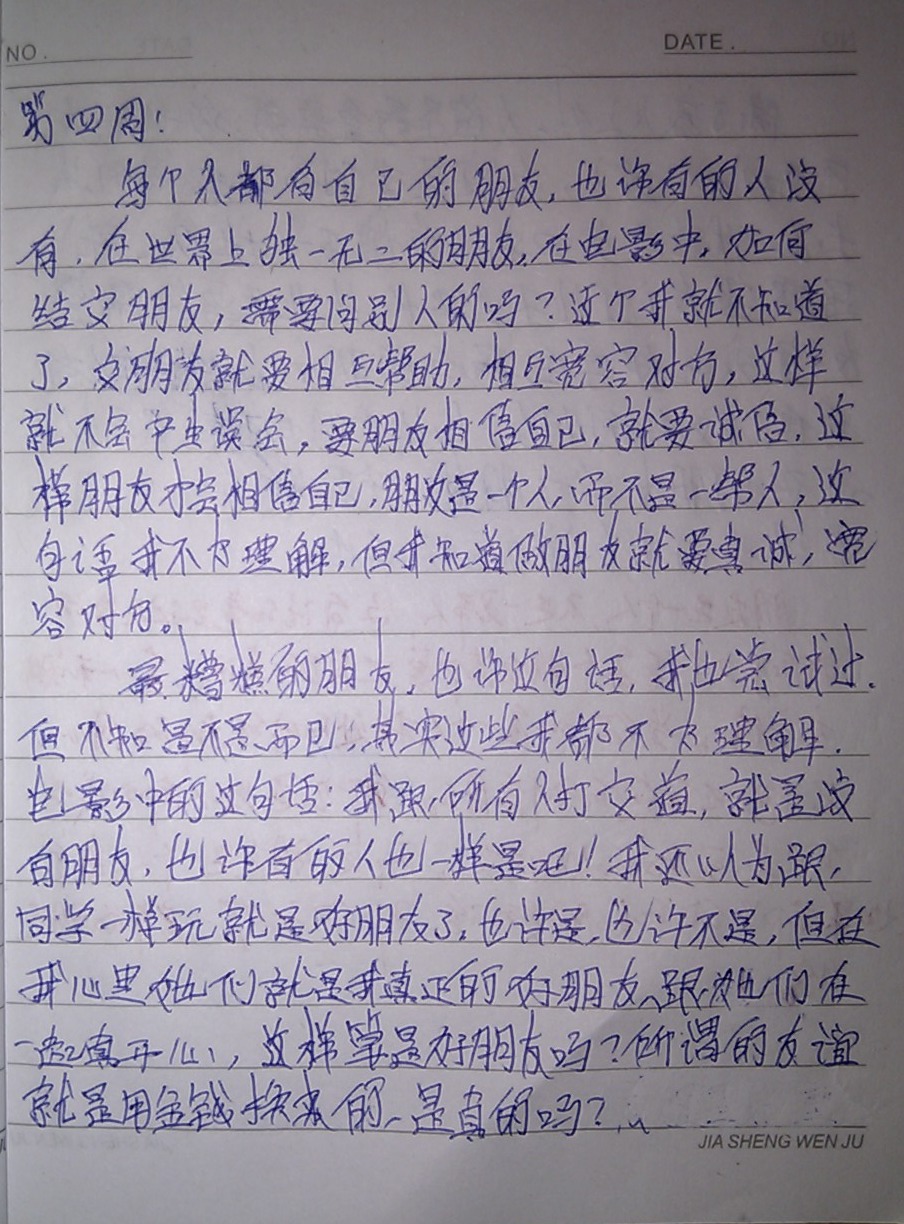 NO.
DATE.
第四周！
每个人都有自己的朋友，也许有的人没
有．在世界上独一无二的朋友，在电影中，如何
结交朋友，需要问别人的吗？这个我就不知道
了，交朋友就要相互帮助，相互宽容对方，这样
就不会产生误会，要朋友相信自己，就要诚信，这
样朋友才会相信自己，朋友是一个人，而不是一帮人，这
句话我不太理解，但我知道做朋友就要真诚，宽
容对方。
最糟糕的朋友，也许这句话，我也尝试过．
但不知是不是而已，其实这些我都不太理解．
电影中的这句话：我跟所有人打交道，就是没
有朋友，也许有的人也一样是吧！我还以为跟
同学一样玩就是好朋友了，也许是，也许不是，但在
我心里她们就是我真正的好朋友、跟她们在
一起真开心，这样算是好朋友吗？所谓的友谊
就是用金钱换来的、是真的吗？
JIA SHENG WEN JU